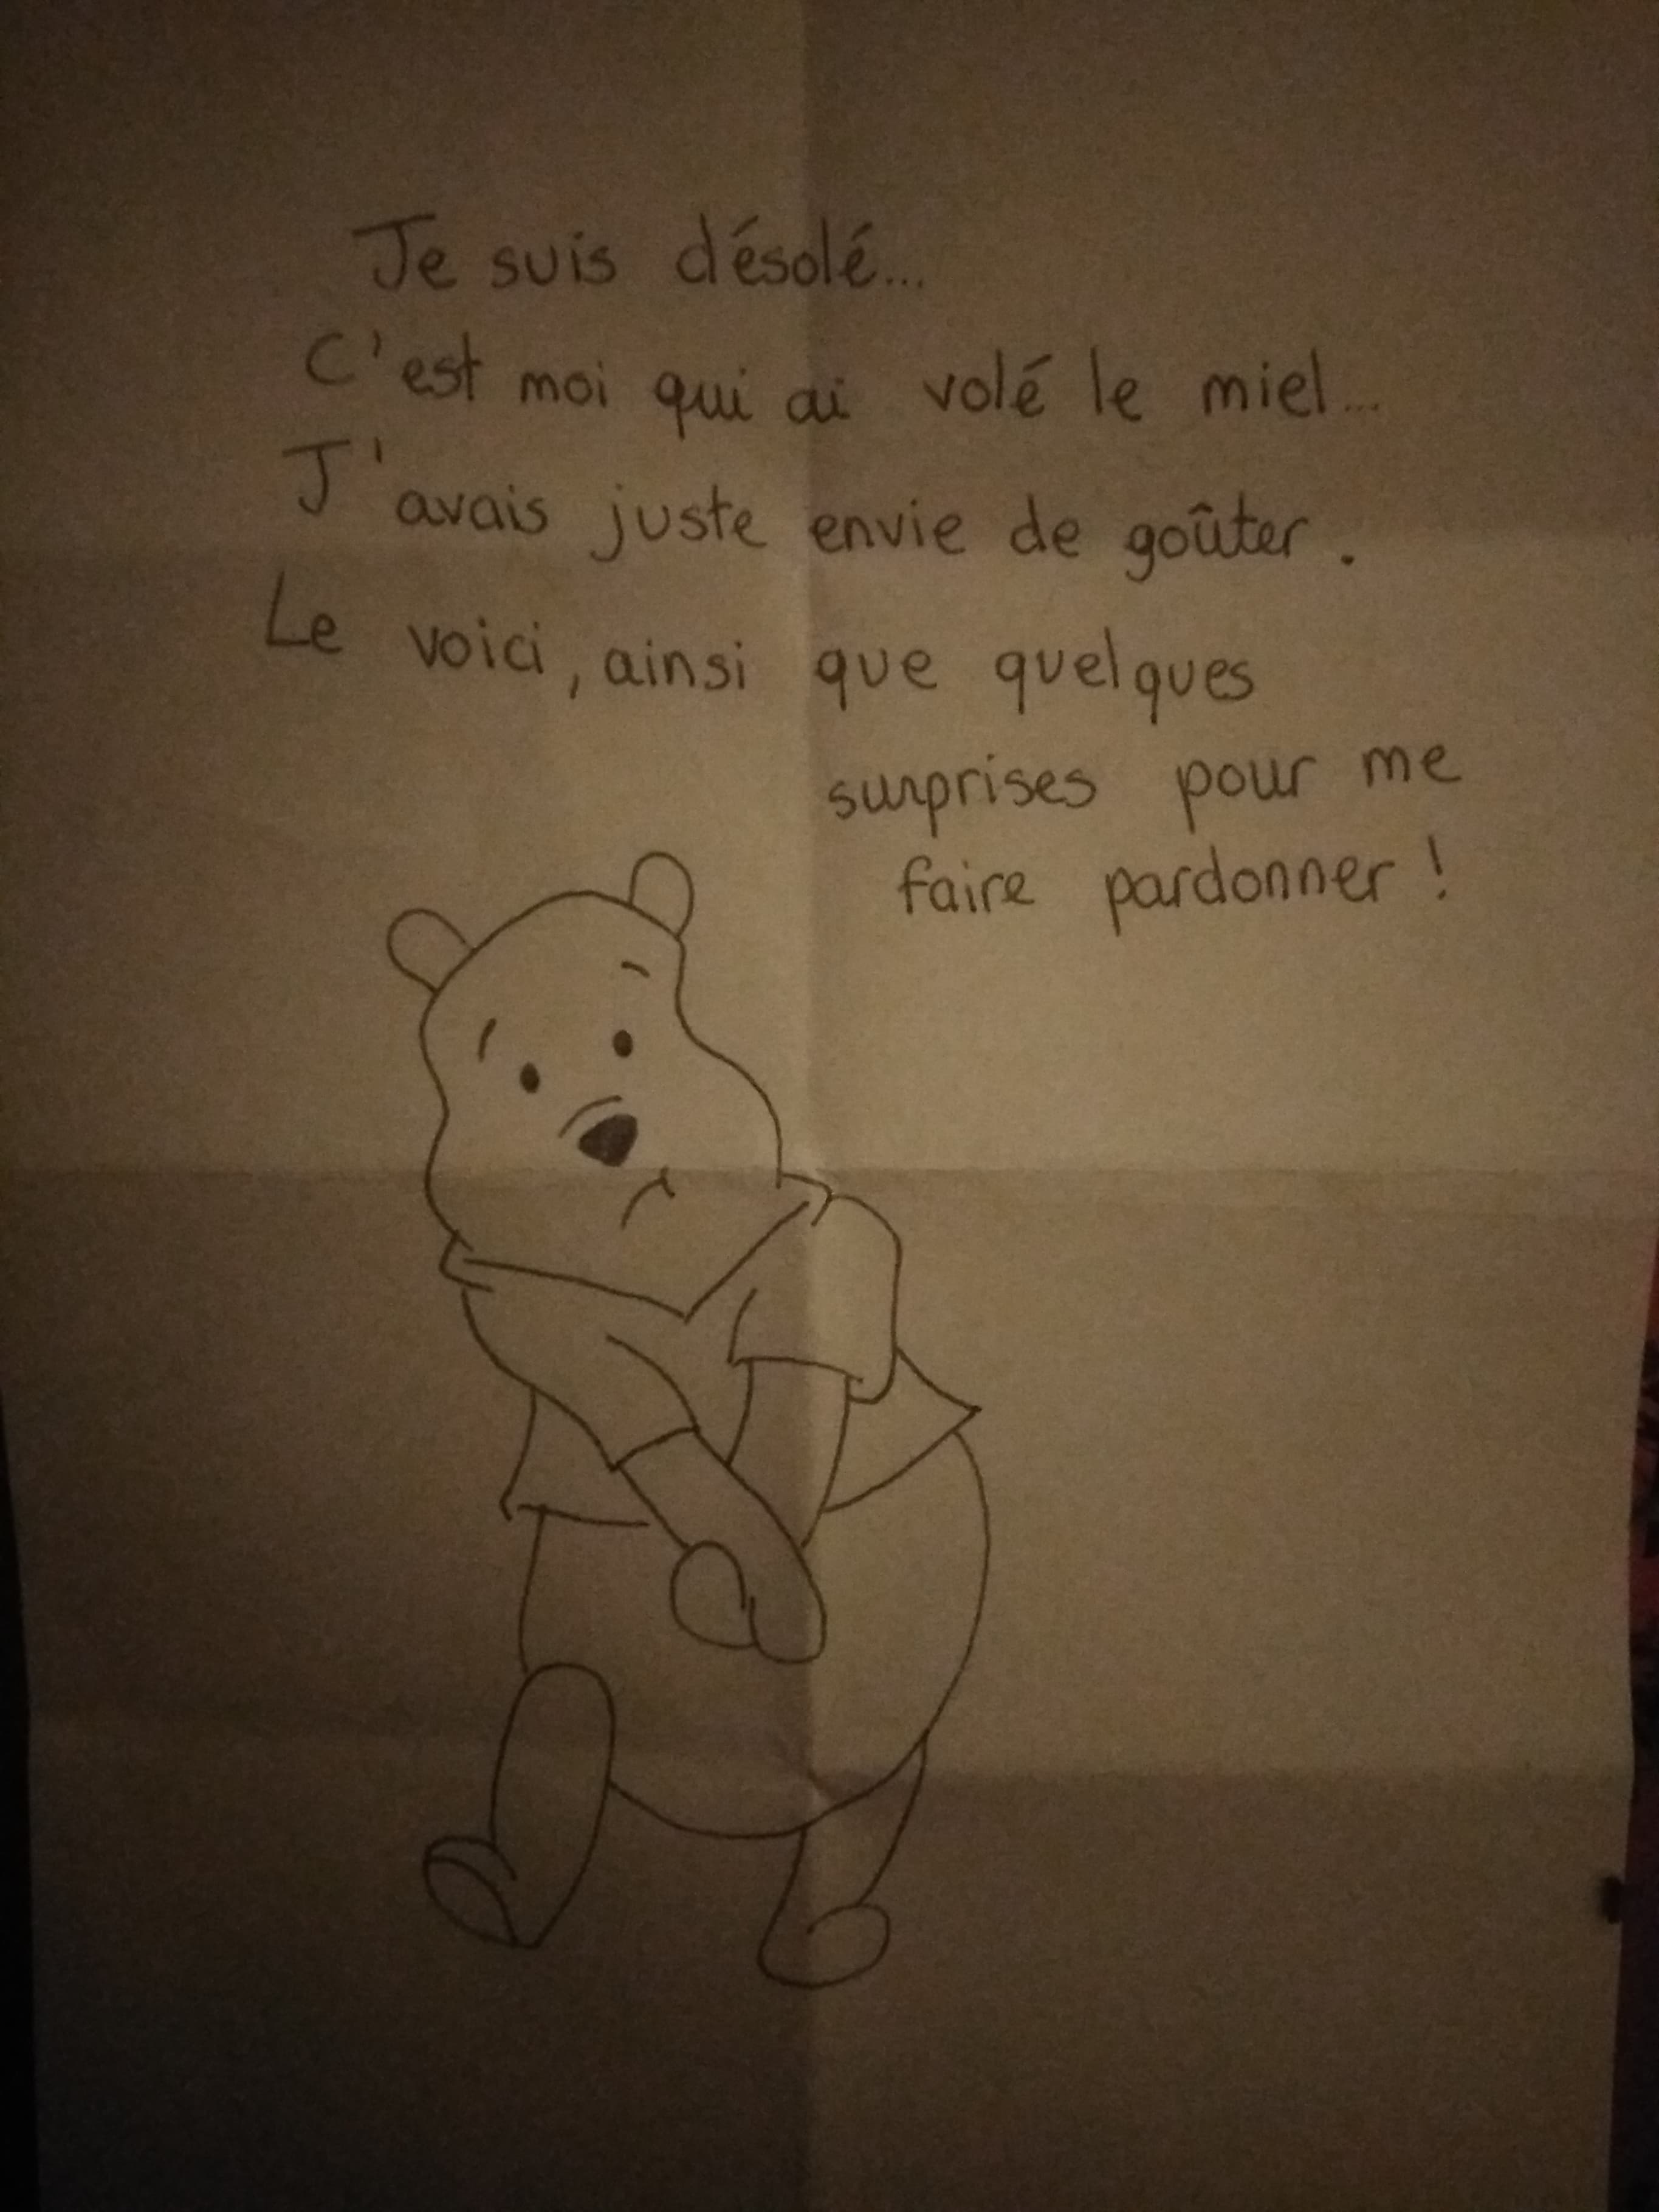 Je suis désolé...
C'est moi qui ai volé le miel...
J'avais juste envie de goûter.
Le voici, ainsi que quelques
surprises pour me
faire pardonner !